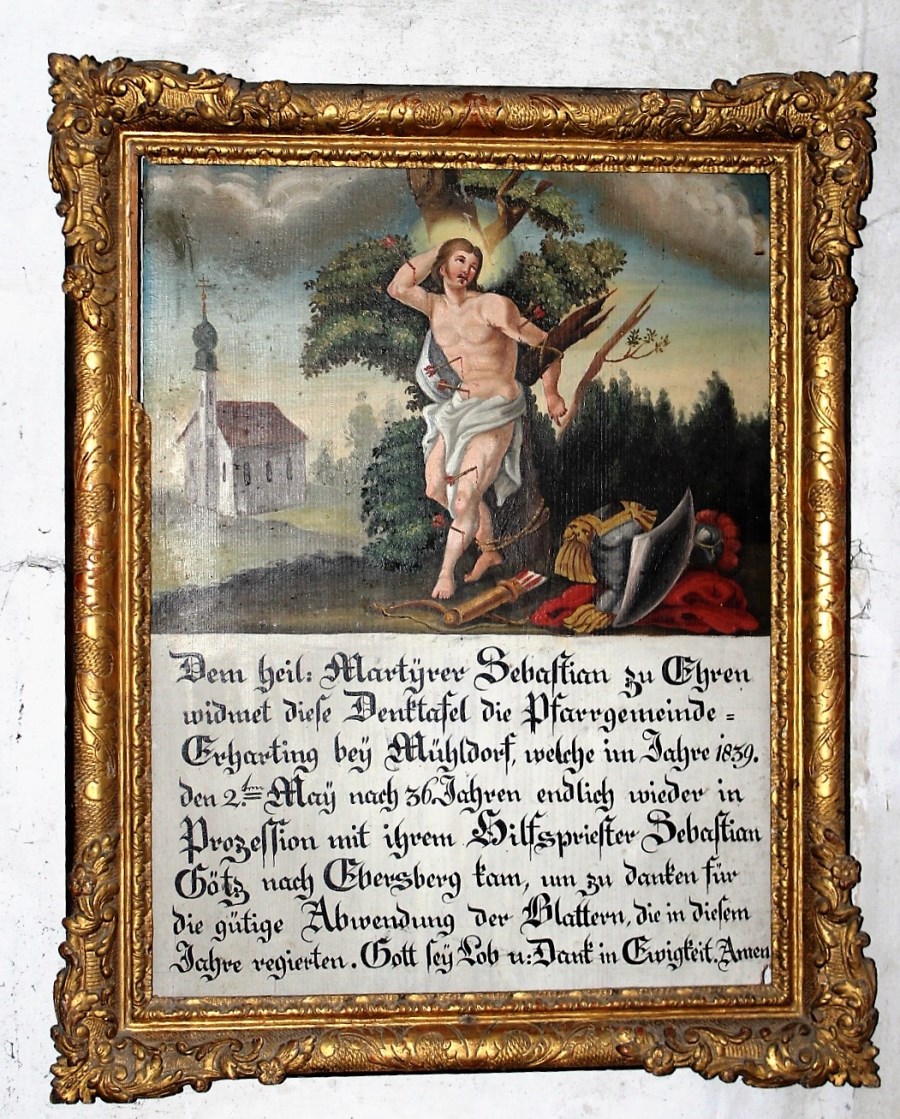 Dem heil: Martÿrer Sebastian zu Ehren
widmet diese Denktafel die Pfarrgemeinde =
Erharting beÿ Mühldorf, welche im Jahre 1839.
den 2.ten Maÿ nach 36. Jahren endlich wieder in
Prozession mit ihrem Hilfspriester Sebastian
Götz nach Ebersberg kam, um zu danken für
die gütige Abwendung der Blattern, die in diesem
Jahre regierten. Gott seÿ Lob u: Dank in Ewigkeit. Amen